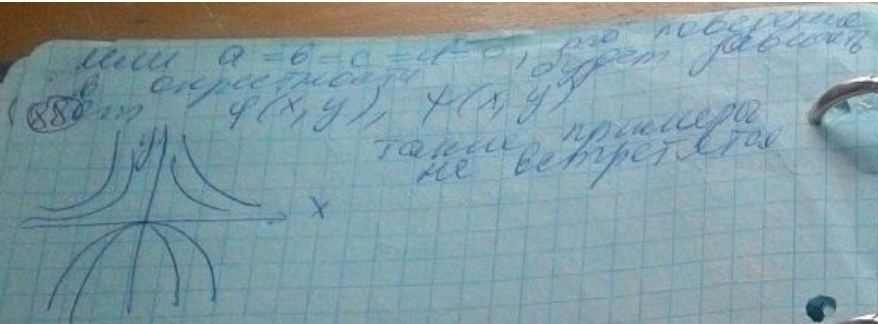 или a = b = c = d = 0, то поведение
в окрестности будет зависеть
(88) от φ(x, y), ψ(x, y)
такие примеры
не встретятся
y
x